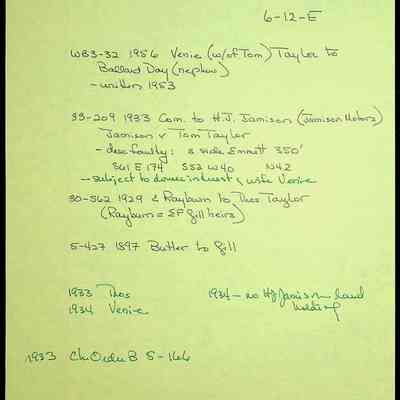 6-12-E
WB3-32 1956 Venie (w/of Tom) Taylor to
Ballard Day (nephew)
- written 1953
33-209 1933 Com. to H.J. Jamison (Jamison Motors)
Jamison v Tom Taylor
- desc faulty: s side Emmett 350'
S61 E 174 S52 W40 N42
- subject to dower interest, wife Venie
30-562 1929 & Rayburn to Thos Taylor
(Rayburn = EF Gill heirs)
5-427 1897 Butler to Gill
1933 Thos
1934 Venie
1934 - no HJ Jamison land
holding
1933 Ch. Order B S-166